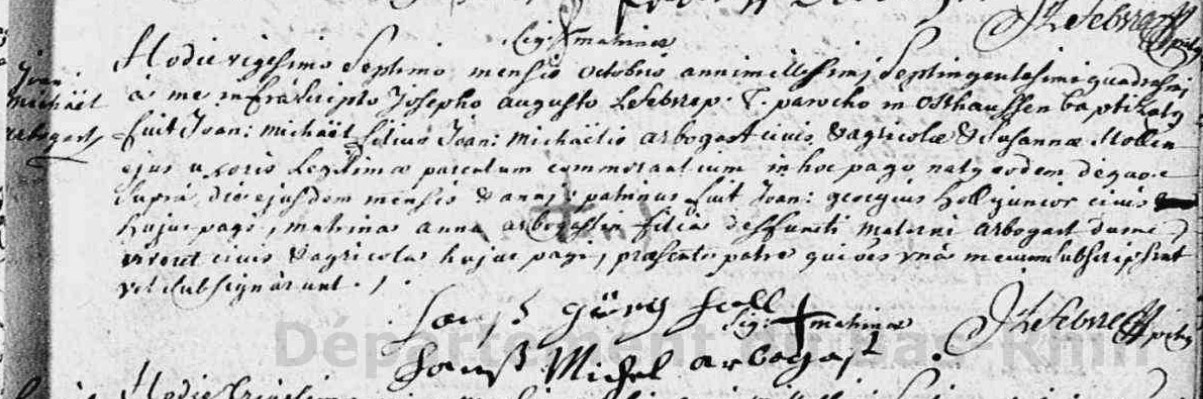 JLefebvre
Sig: + matrinae
Joan:
Michaël
arbogast
Hodie vigesimo septimo mensis octobris anni millesimi septingentesimi quadragesimi
à me infrascripto Josepho augusto Lefebvre p. t. parocho in Osthaussen baptizatus
fuit Joan: Michaël filius Joan: Michaëlis arbogast civis & agricolae & Susannae Mollen
ejus uxoris Legitimae parentum commorantium in hoc pago natus eodem de quo
supra die ejusdem mensis & anni; patrinus fuit Joan: georgius hell junior civis
hujus pagi, matrina anna arbogastin filia deffuncti materni arbogast dum
viveret civis & agricolae hujus pagi, praesente patre qui oes unà mecum subscripserunt
vel subsignàrunt ./.
hanß görg hell
Sig: + matrinae
JLefebvre
hanß Michel arbogast
Département du Bas-Rhin
Hodie